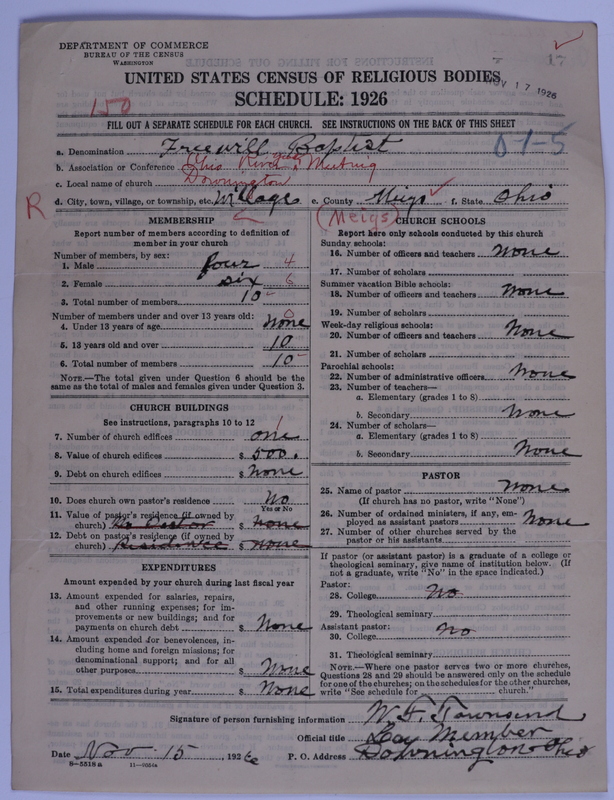 DEPARTMENT OF COMMERCE
BUREAU OF THE CENSUS
WASHINGTON
17
UNITED STATES CENSUS OF RELIGIOUS BODIES
NOV 17 1926
SCHEDULE: 1926
150
FILL OUT A SEPARATE SCHEDULE FOR EACH CHURCH. SEE INSTRUCTIONS ON THE BACK OF THIS SHEET
01-5
a. Denomination Freewill Baptist
b. Association or Conference Ohio River Yearly Meeting
c. Local name of church Downington
R
d. City, town, village, or township, etc. Village e. County Meigs f. State Ohio
(Meigs)
MEMBERSHIP
Report number of members according to definition of member in your church
Number of members, by sex:
1. Male four 4
2. Female six 6
3. Total number of members 10
Number of members under and over 13 years old:
4. Under 13 years of age None 0
5. 13 years old and over 10
6. Total number of members 10
NOTE.—The total given under Question 6 should be the
same as the total of males and females given under Question 3.
CHURCH BUILDINGS
See instructions, paragraphs 10 to 12
7. Number of church edifices one 1
8. Value of church edifices $ 500.
9. Debt on church edifices $ None
10. Does church own pastor's residence No
Yes or No
11. Value of pastor's residence (if owned by
church) No Pastor $ none
12. Debt on pastor's residence (if owned by
church) Residence $ none
EXPENDITURES
Amount expended by your church during last fiscal year
13. Amount expended for salaries, repairs,
and other running expenses; for im-
provements or new buildings; and for
payments on church debt $ None
14. Amount expended for benevolences, in-
cluding home and foreign missions; for
denominational support; and for all
other purposes $ None
15. Total expenditures during year $ None
CHURCH SCHOOLS
Report here only schools conducted by this church
Sunday schools:
16. Number of officers and teachers None
17. Number of scholars
Summer vacation Bible schools:
18. Number of officers and teachers None
19. Number of scholars
Week-day religious schools:
20. Number of officers and teachers None
21. Number of scholars
Parochial schools:
22. Number of administrative officers None
23. Number of teachers—
a. Elementary (grades 1 to 8)
b. Secondary None
24. Number of scholars—
a. Elementary (grades 1 to 8)
b. Secondary None
PASTOR
25. Name of pastor None
(If church has no pastor, write "None")
26. Number of ordained ministers, if any, em-
ployed as assistant pastors None
27. Number of other churches served by the
pastor or his assistants
If pastor (or assistant pastor) is a graduate of a college or
theological seminary, give name of institution below. (If
not a graduate, write "No" in the space indicated.)
Pastor:
28. College No
29. Theological seminary
Assistant pastor:
30. College No
31. Theological seminary
NOTE.—Where one pastor serves two or more churches,
Questions 28 and 29 should be answered only on the schedule
for one of the churches; on the schedules for the other churches,
write "See schedule for church."
Signature of person furnishing information W. F. Townsend
Official title Lay Member
Date Nov 15, 1926 P. O. Address Downington Ohio
8-5518 a 11-9554